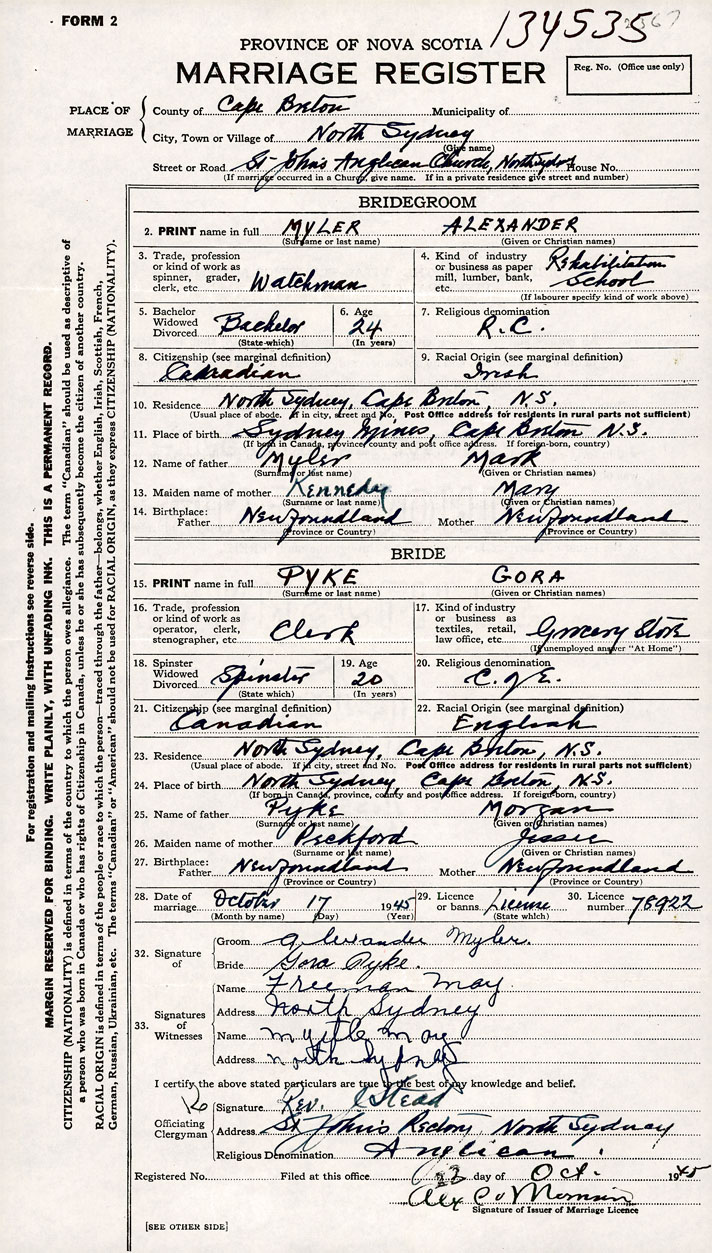 FORM 2
134535
PROVINCE OF NOVA SCOTIA
MARRIAGE REGISTER
Reg. No. (Office use only)
PLACE OF MARRIAGE
County of Cape Breton Municipality of
City, Town or Village of North Sydney
(Give name)
Street or Road St John's Anglican Church, North Sydney House No.
(If marriage occurred in a Church, give name. If in a private residence give street and number)
BRIDEGROOM
2. PRINT name in full MYLER ALEXANDER
(Surname or last name) (Given or Christian names)
3. Trade, profession or kind of work as spinner, grader, clerk, etc. Watchman
4. Kind of industry or business as paper mill, lumber, bank, etc. Rehabilitation School
(If labourer specify kind of work above)
5. Bachelor Widowed Divorced Bachelor
(State which)
6. Age 24
(In years)
7. Religious denomination R.C.
8. Citizenship (see marginal definition) Canadian
9. Racial Origin (see marginal definition) Irish
10. Residence North Sydney, Cape Breton, N.S.
(Usual place of abode. If in city, street and No. Post Office address for residents in rural parts not sufficient)
11. Place of birth Sydney Mines, Cape Breton N.S.
(If born in Canada, province county and post office address. If foreign-born, country)
12. Name of father Myler Mark
(Surname or last name) (Given or Christian names)
13. Maiden name of mother Kennedy Mary
(Surname or last name) (Given or Christian names)
14. Birthplace: Father Newfoundland Mother Newfoundland
(Province or Country) (Province or Country)
BRIDE
15. PRINT name in full PYKE GORA
(Surname or last name) (Given or Christian names)
16. Trade, profession or kind of work as operator, clerk, stenographer, etc. Clerk
17. Kind of industry or business as textiles, retail, law office, etc. Grocery Store
(If unemployed answer "At Home")
18. Spinster Widowed Divorced Spinster
(State which)
19. Age 20
(In years)
20. Religious denomination C. of E.
21. Citizenship (see marginal definition) Canadian
22. Racial Origin (see marginal definition) English
23. Residence North Sydney, Cape Breton, N.S.
(Usual place of abode. If in city, street and No. Post Office address for residents in rural parts not sufficient)
24. Place of birth North Sydney, Cape Breton, N.S.
(If born in Canada, province, county and post office address. If foreign-born, country)
25. Name of father Pyke Morgan
(Surname or last name) (Given or Christian names)
26. Maiden name of mother Peckford Jessie
(Surname or last name) (Given or Christian names)
27. Birthplace: Father Newfoundland Mother Newfoundland
(Province or Country) (Province or Country)
28. Date of marriage October 17 1945
(Month by name) (Day) (Year)
29. Licence or banns. License
(State which)
30. Licence number 78922
32. Signature of
Groom Alexander Myler.
Bride Gora Pyke.
33. Signatures of Witnesses
Name Freeman May
Address North Sydney
Name Myrtle May
Address North Sydney
I certify the above stated particulars are true to the best of my knowledge and belief.
Officiating Clergyman
Signature Rev. Stead
Address St John's Rectory North Sydney
Religious Denomination Anglican
Registered No. Filed at this office 23 day of Oct. 1945
Signature of Issuer of Marriage Licence
[SEE OTHER SIDE]
For registration and mailing instructions see reverse side.
MARGIN RESERVED FOR BINDING. WRITE PLAINLY, WITH UNFADING INK. THIS IS A PERMANENT RECORD.
CITIZENSHIP (NATIONALITY) is defined in terms of the country to which the person owes allegiance. The term "Canadian" should be used as descriptive of
a person who was born in Canada or who has rights of Citizenship in Canada, unless he or she has subsequently become the citizen of another country.
RACIAL ORIGIN is defined in terms of the people or race to which the person—traced through the father—belongs, whether English, Irish, Scottish, French,
German, Russian, Ukrainian, etc. The terms "Canadian" or "American" should not be used for RACIAL ORIGIN, as they express CITIZENSHIP (NATIONALITY).